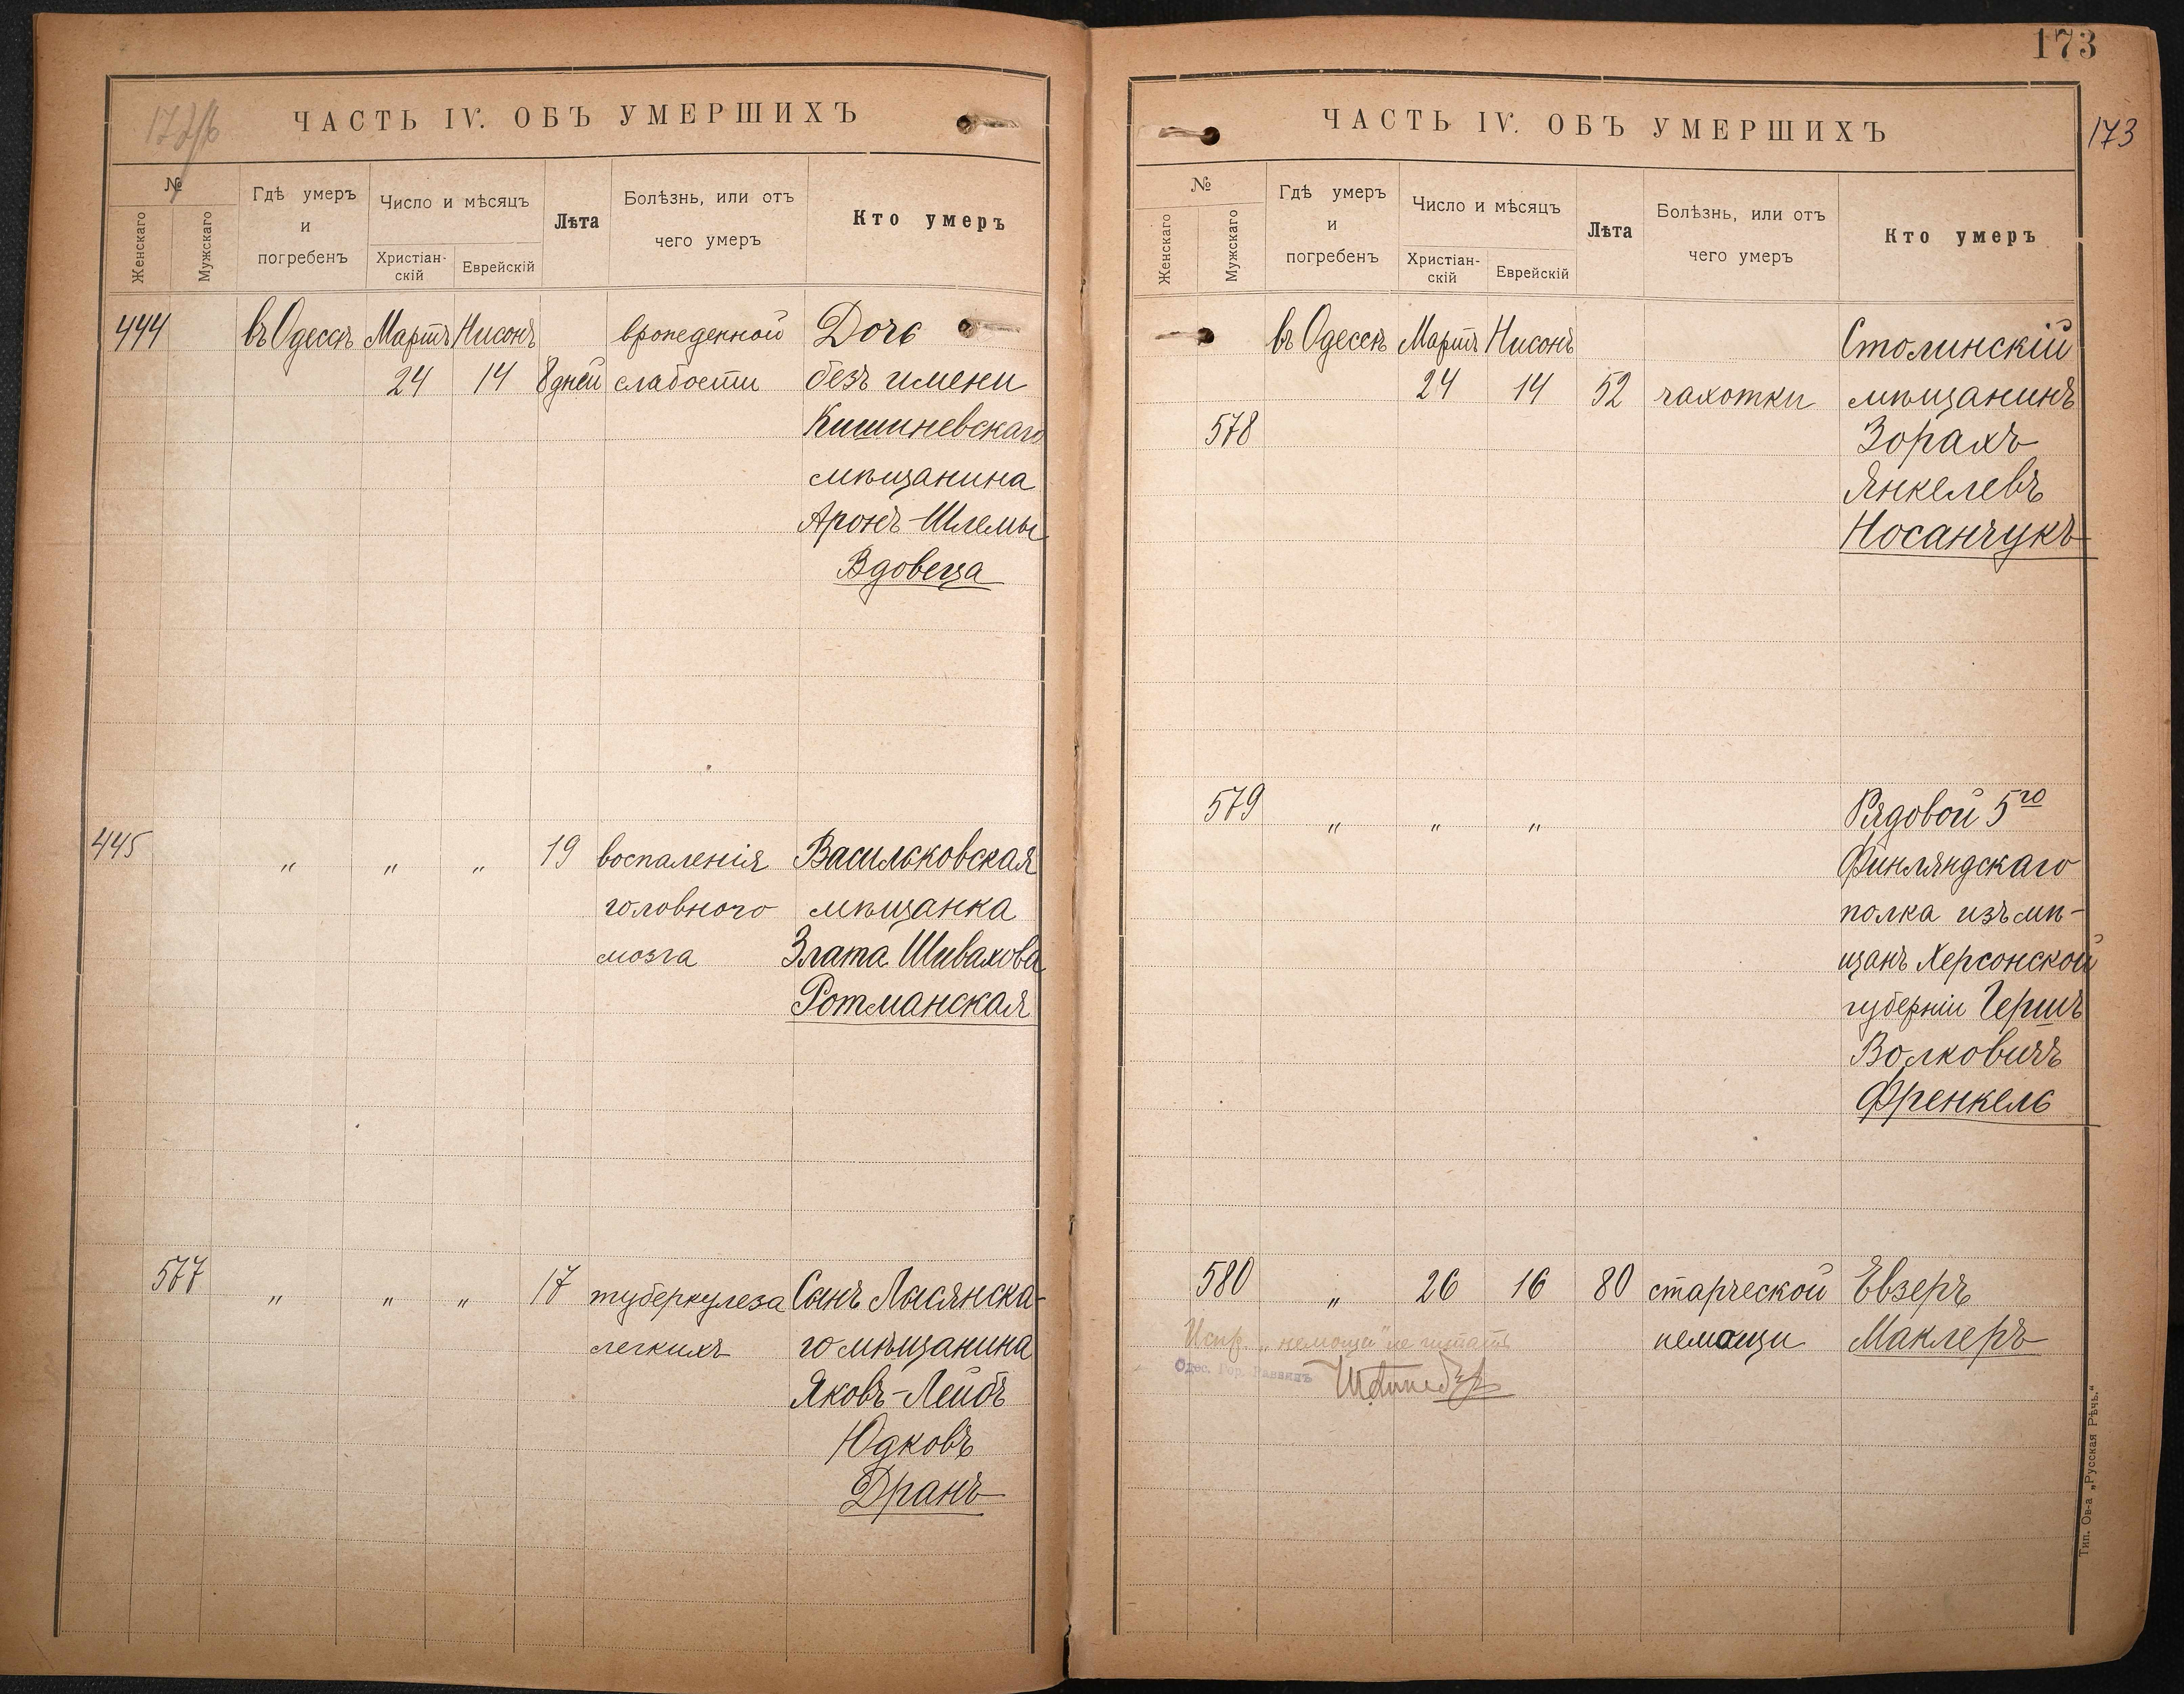 ЧАСТЬ IV. ОБЪ УМЕРШИХЪ
№
Женскаго
Мужскаго
Гдѣ умеръ
и
погребенъ
Число и мѣсяцъ
Христіан-
скій
Еврейскій
Лѣта
Болѣзнь, или отъ
чего умеръ
Кто умеръ
444 въ Одессѣ Мартъ Нисонъ врожденной Дочь
24 14 8 дней слабости безъ имени
Кишиневскаго
мѣщанина
Аронъ-Шлемы
Вдовеца
445 " " " 19 воспаленія Васильковская
головного мѣщанка
мозга Злата Шивахова
Ротманская
577 " " " 17 туберкулеза Сынъ Лысянска-
легкихъ го мѣщанина
Яковъ-Лейбъ
Юдковъ
Дранъ
173
ЧАСТЬ IV. ОБЪ УМЕРШИХЪ
173
№
Женскаго
Мужскаго
Гдѣ умеръ
и
погребенъ
Число и мѣсяцъ
Христіан-
скій
Еврейскій
Лѣта
Болѣзнь, или отъ
чего умеръ
Кто умеръ
въ Одессѣ Мартъ Нисонъ Столинскій
24 14 52 чахотки мѣщанинъ
578 Зорахъ
Янкелевъ
Носанчукъ
579 " " " Рядовой 5го
Финляндскаго
полка изъ мѣ-
щанъ Херсонской
губерніи Гершъ
Волковичъ
Френкель
580 " 26 16 80 старческой Евзеръ
немощи Маклеръ
Испр. „немощи"
Одес. Гор. Раввинъ
Тип. Ов-а „Русская Рѣчь."